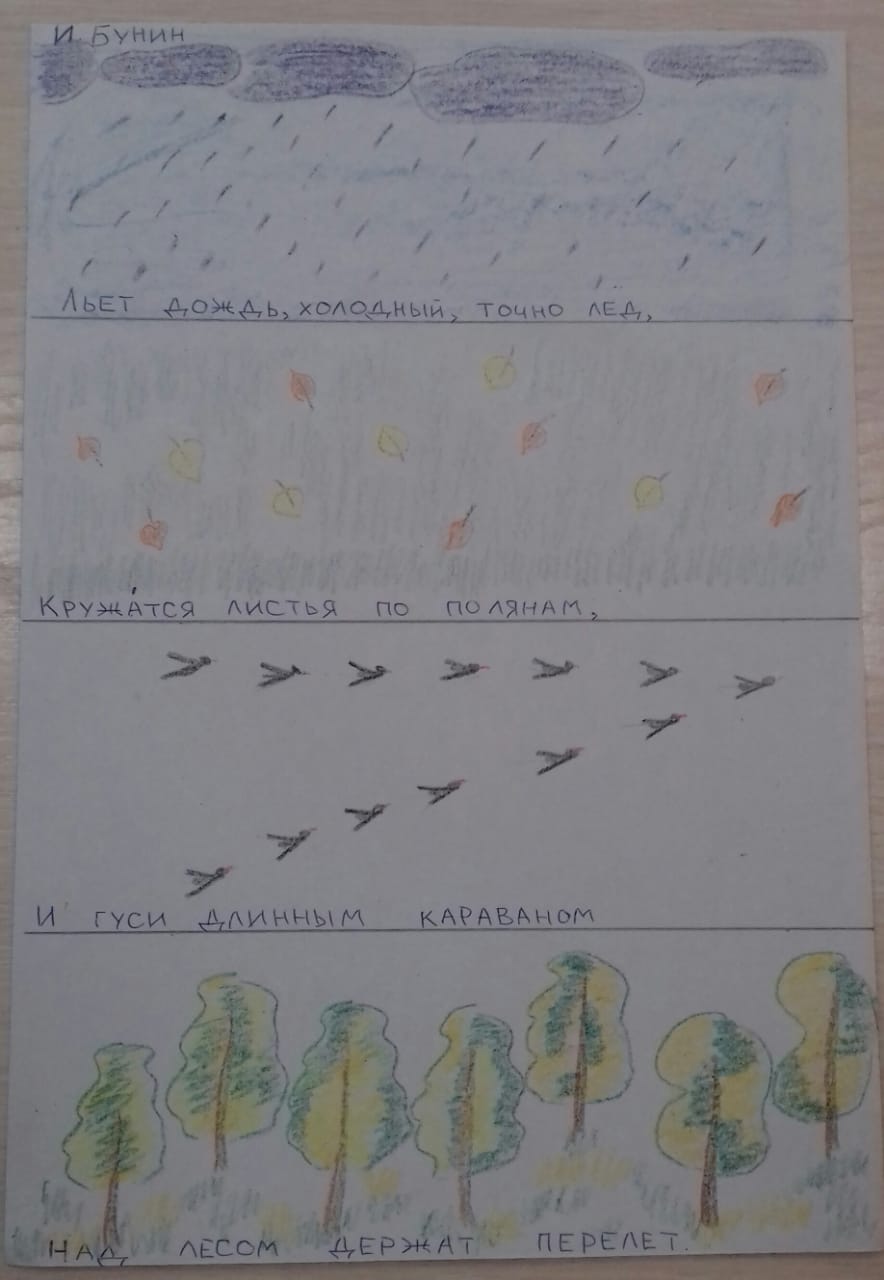 И. БУНИН
ЛЬЕТ ДОЖДЬ, ХОЛОДНЫЙ, ТОЧНО ЛЁД,
КРУЖА́ТСЯ ЛИСТЬЯ ПО ПОЛЯНАМ,
И ГУСИ ДЛИННЫМ КАРАВАНОМ
НАД ЛЕСОМ ДЕРЖАТ ПЕРЕЛЕТ.